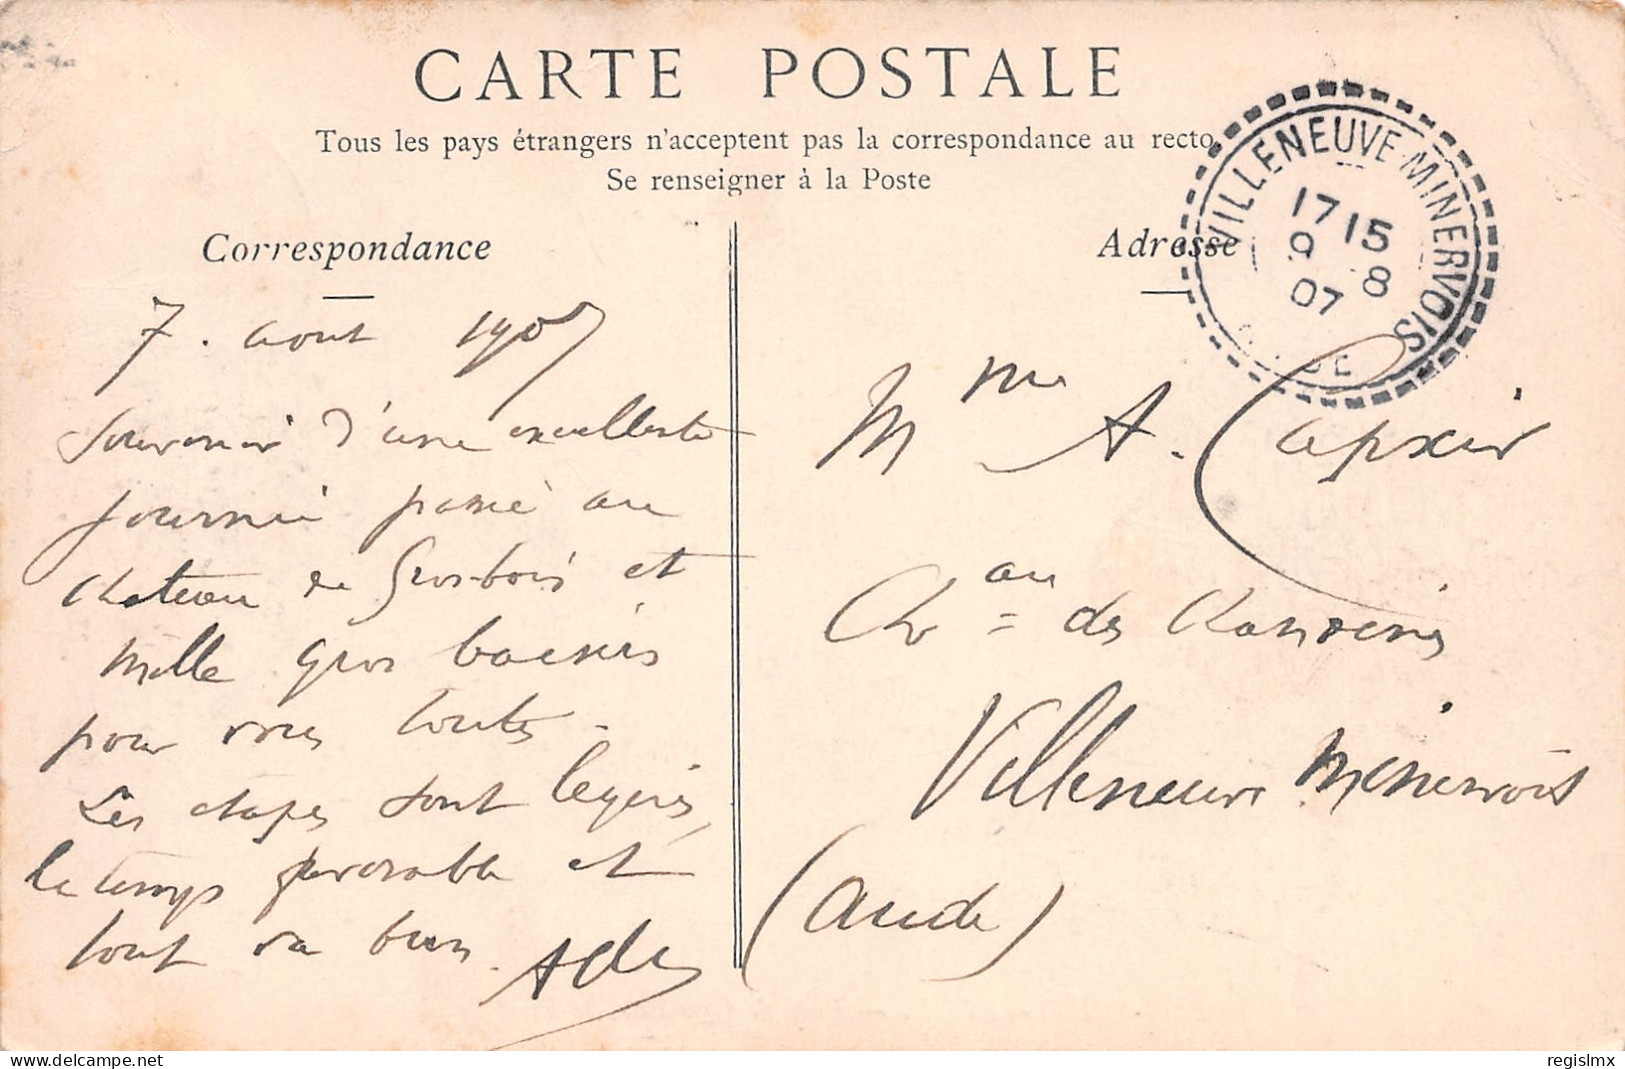 CARTE POSTALE
Tous les pays étrangers n'acceptent pas la correspondance au recto.
Se renseigner à la Poste
Correspondance
Adresse
VILLENEUVE-MINERVOIS
17 15
9 8
07
7. aout 1907
Souvenir d'une excellente
journée passé au
chateau de Grosbois et
mille gros baisers
pour vous toutes -
Les etapes sont legères,
le temps favorable et
tout va bien.
Mme A. Capxir
Chau des
Villeneuve Minervois
(Aude)
regislmx